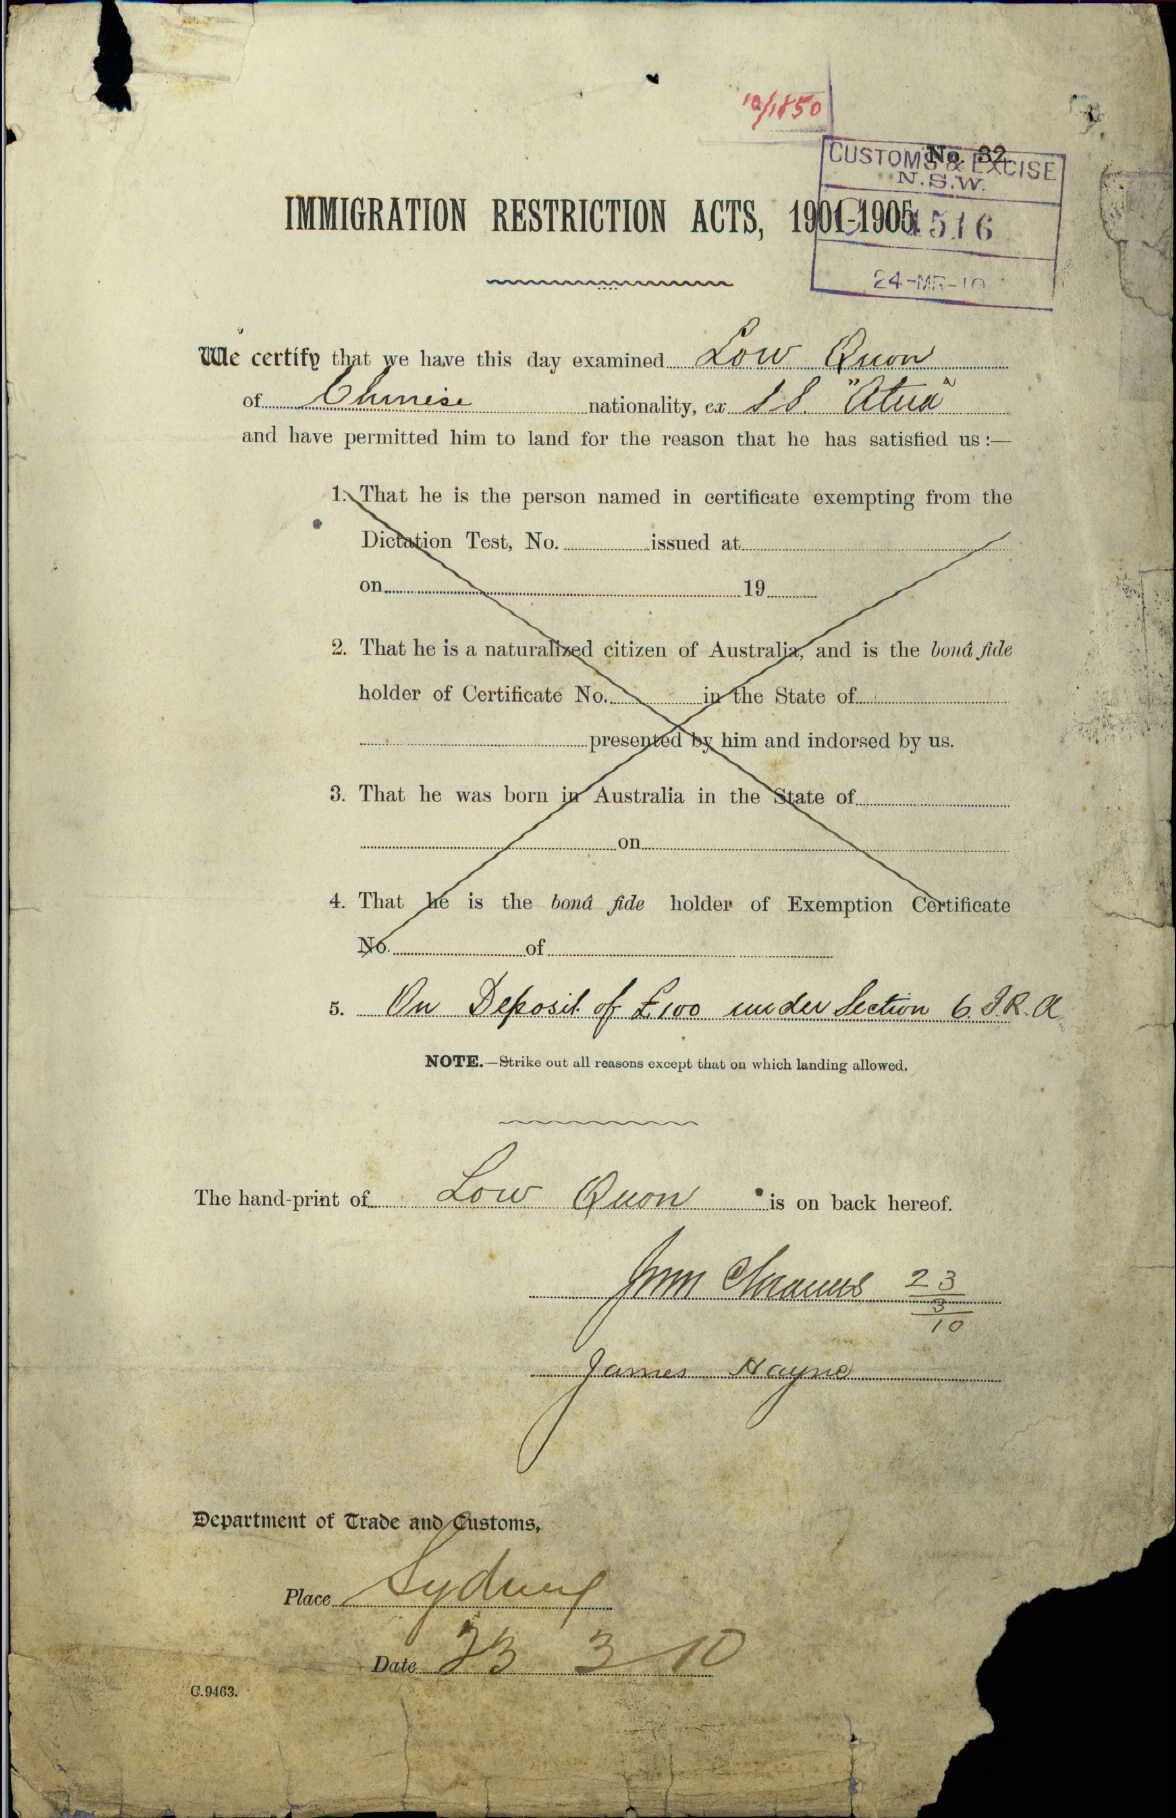 10/1850
No. 32
CUSTOMS & EXCISE
N.S.W.
IMMIGRATION RESTRICTION ACTS, 1901-1905.
4516
24-MR-10
We certify that we have this day examined Low Quon
of Chinese nationality, ex S S. "Atua"
and have permitted him to land for the reason that he has satisfied us :—
1. That he is the person named in certificate exempting from the
Dictation Test, No. issued at
on 19
2. That he is a naturalized citizen of Australia, and is the bonâ fide
holder of Certificate No. in the State of
presented by him and indorsed by us.
3. That he was born in Australia in the State of
on
4. That he is the bonâ fide holder of Exemption Certificate
No. of
5. On Deposit of £100 under Section 6. I.R.A
NOTE.—Strike out all reasons except that on which landing allowed.
The hand-print of Low Quon is on back hereof.
23
3
10
James Hayne
Department of Trade and Customs,
Place Sydney
Date 23 3 10
C.9463.